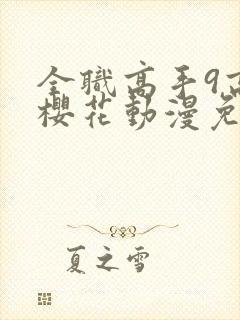 全職高手9高
櫻花動漫免
夏之雪